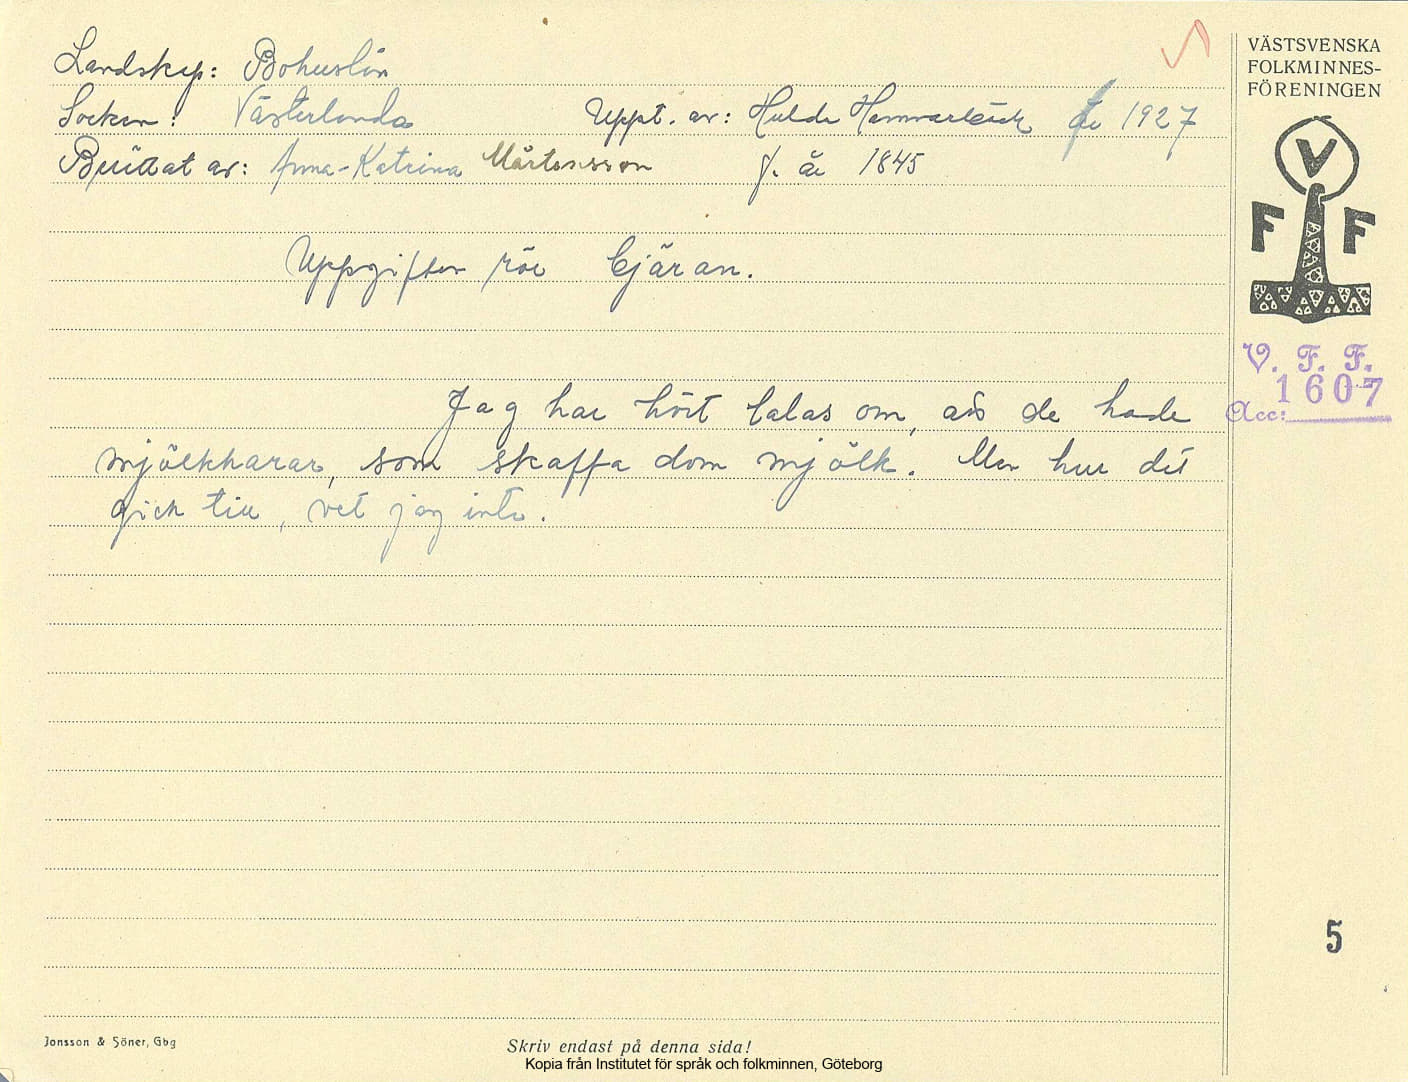 Landskap: Bohuslän
Socken: Västerlanda Uppt. av: Hulda Hammarbäck år 1927
Berättat av: Anna-Katrina Mårtensson f. år 1845
Uppgifter rör bjäran.
Jag har hört talas om, att de hade
mjölkharar, som skaffa dom mjölk. Men hur det
gick till, vet jag inte.
VÄSTSVENSKA
FOLKMINNES-
FÖRENINGEN
V
F F
V. F. F.
1607
Acc:
5
Jonsson & Söner, Gbg
Skriv endast på denna sida!
Kopia från Institutet för språk och folkminnen, Göteborg